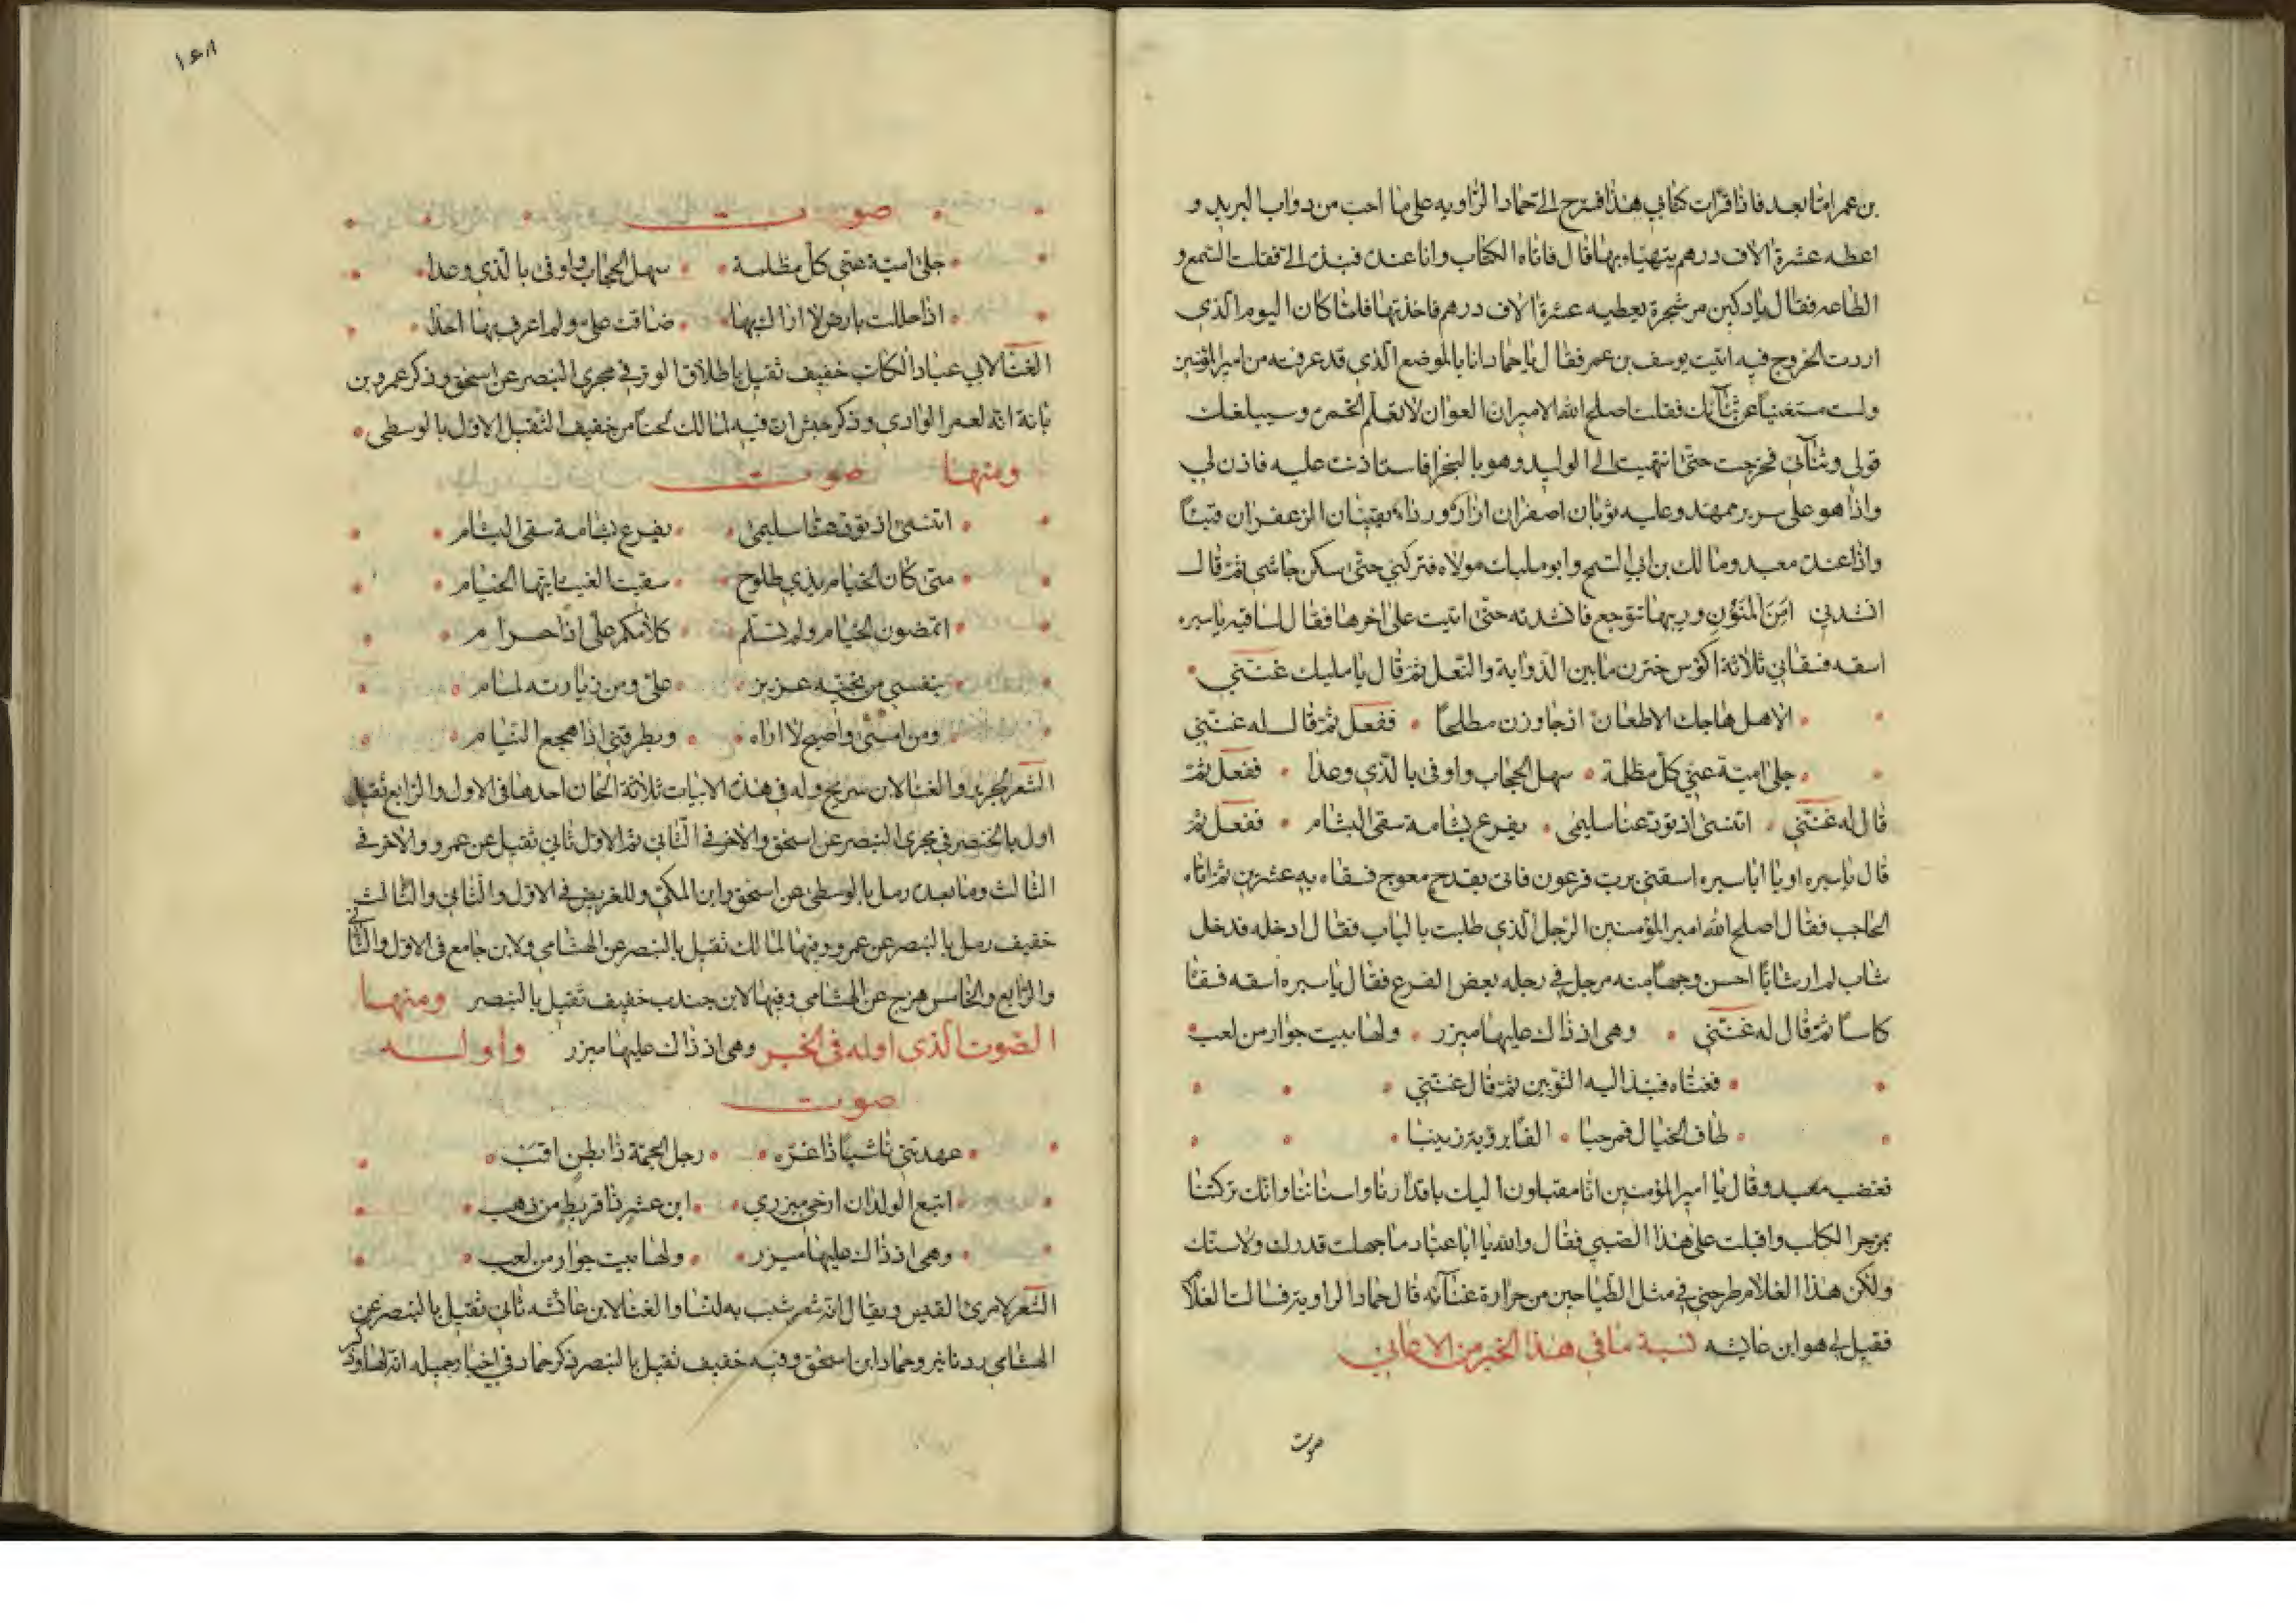 بن عمر امّا بعد فاذا قرات كتابي هذا فسرح الى حماد الراويه على ما احب من دواب البريد و
اعطه عشرة الاف درهم يتهيّا بها قال فاتاه الكتاب وانا عنده فنبذه الى فقلت السمع و
الطاعه فقال يا دكين مر شجرة يعطيه عشرة الاف درهم فاخذتها فلما كان اليوم الذي
اردت الخروج فيه اتيت يوسف بن عمر فقال يا حماد انا بالموضع الذي قد عرفته من امير المؤمنين
ولست مستغنيا عن ثنآئك فقلت اصلح الله الامير ان العوان لا تعلّم الخمرة وسيبلغك
قولى وثنآئي فخرجت حتى انتهيت الى الوليد وهو بالبخرا فاستاذنت عليه فاذن لي
واذا هو على سرير ممهد وعليه ثوبان اصفران ازار ورداء يقيئان الزعفران قيئاً
واذا عنده معبد ومالك بن ابي السمح وابو مليك مولاه فتركني حتى سكن جاشي ثم قال
انشدني امِنَ المَنُونِ وريبها تتوجع فانشدته حتى اتيت على اخرها فقال لساقيه ياسبره
اسقه فسقاني ثلاثة اكؤس خثرن ما بين الذوابة والنعل ثم قال يا مليك غنّني
الا هل هاجك الاظعان اذ جاوزن مطلحا ففعل ثم قال له غنّني
جلى اميّة عني كل مظلمة سهل الحجاب واوفى بالذي وعدا ففعل ثم
قال له غنّني اتنسى اذ تودعنا سليمى بفرع بشامة سقى البشام ففعل ثم
قال ياسبره او يا اباسبره اسقني بزب فرعون فاتى بقدح معوج فسقاه به عشرين ثم اتاه
الحاجب فقال اصلح الله امير المؤمنين الرجل الذي طلبت بالباب فقال ادخله فدخل
شاب لم ار شابّا احسن وجها منه مرجل في رجله بعض الفدع فقال ياسبره اسقه فسقا
كاساً ثم قال له غنّني وهى اذ ذاك عليها ميزر ولها بيت جوار من لعب
فغناه فنبذ اليه الثوبين ثم قال غنّني
طاف الخيال فمرحبا الفا برؤية زينبا
فغضب معبد وقال يا امير المؤمنين انا مقبلون اليك باقدارنا واسناننا وانك تركتنا
بمزجر الكلب واقبلت على هذا الصبي فقال والله يا ابا عبّاد ما جهلت قدرك ولا سنّك
ولكن هذا الغلام طرحني في مثل الطياجين من حرارة غنآئه قال حماد الراوية فسالت الغلام
فقيل لي هو ابن عايشه نسبة ما في هذا الخبر من الاغاني
صوت
١٤٨
صوت
جلى اميّة عنّي كل مظلمة سهل الحجاب واوفى بالذي وعدا
اذا حللت بارض لا اراك بها ضاقت علىّ ولم اعرف بها احدا
الغنا لابي عباد الكاتب خفيف ثقيل باطلاق الوتر في مجرى البنصر عن اسحق وذكر عمرو بن
بانة انه لعمر الوادي وذكر حبش ان فيه لمالك لحنا من خفيف الثقيل الاول بالوسطى
ومنها صوت
اتنسى اذ تودعنا سليمى بفرع بشامة سقى البشام
متى كان الخيام بذي طلوح سقيت الغيث ايتها الخيام
اتمضون الخيام ولم تسلّم كلامكم على اذًا حرام
بنفسي من تجنّبه عزيز علىّ ومن زيارته لمام
ومن امسى واصبح لا اراه ويطرقني اذا هجع النيام
الشعر لجرير والغنا لابن سريج وله في هذه الابيات ثلاثة الحان احدها فى الاول والرابع ثقيل
اول بالخنصر في مجرى البنصر عن اسحق والاخر في الثاني ثم الاول ثاني ثقيل عن عمرو والاخر في
الثالث وما بعده رمل بالوسطى عن اسحق وابن المكي وللغريض في الاول والثاني والثالث
خفيف رمل بالبنصر عن عمرو وفيها لمالك ثقيل بالبنصر عن الهشامي ولابن جامع فى الاول والثاني
والرابع والخامس هزج عن الهشامي وفيها لابن جندب خفيف ثقيل بالبنصر ومنها
الصوت الذى اوله فى الخبر وهى اذ ذاك عليها ميزر واوله
صوت
عهدتني ناشيًا ذا غرّه رجل الجمّة ذا بطنٍ اقب
اتبع الولدان ارخي ميزري ابن عشر ذا قريطٍ من ذهب
وهى اذ ذاك عليها ميزر ولها بيت جوار من لعب
الشعر لامرئ القيس ويقال انه شعر شبب به لنسا والغنا لابن عائشه ثاني ثقيل بالبنصر عن
الهشامى ودنانير وحماد ابن اسحق وفيه خفيف ثقيل بالبنصر ذكر حماد في اخبار جميله انه لها وذكر